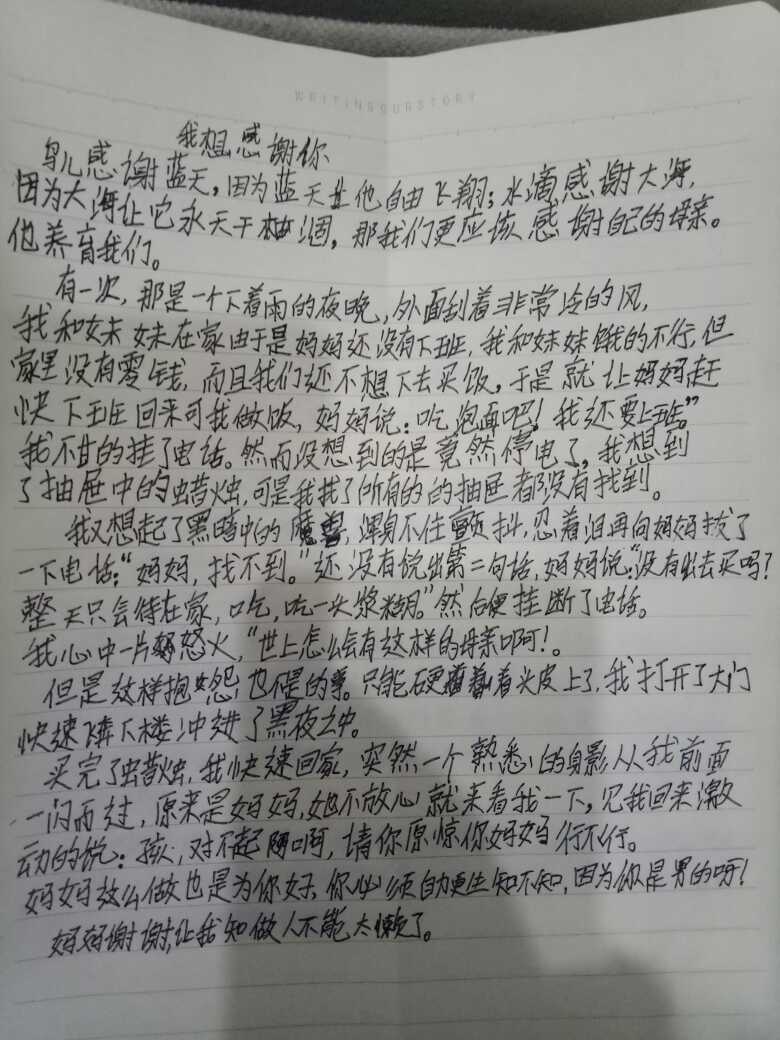 WRITINGOURSTORY
我想感谢你
鸟儿感谢蓝天,因为蓝天让他自由飞翔;水滴感谢大海,
因为大海让它永无干枯涸,那我们更应该感谢自己的母亲。
他养育我们。
有一次,那是一个下着雨的夜晚,外面刮着非常冷的风,
我和妹妹在家由于是妈妈还没有下班,我和妹妹饿的不行,但
家里没有零钱,而且我们还不想下去买饭,于是就让妈妈赶
快下班回来可我做饭,妈妈说:吃泡面吧!我还要上班。”
我不甘的挂了电话。然而没想到的是竟然停电了,我想到
了抽屉中的蜡烛,可是我找了所有的的抽屉都没有找到。
我又想起了黑暗中的魔兽,浑身不住颤抖,忍着泪再向妈妈拨了
一下电话:“妈妈,找不到。”还没有说出第二句话,妈妈说:“没有出去买吗?
整天只会待在家,吃,吃一头浆糊。”然后便挂断了电话。
我心中一片怒火,“世上怎么会有这样的母亲啊!。
但是这样抱怨也不是的事。只能硬着头皮上了,我打开了大门
快速下楼冲进了黑夜之中。
买完了蜡烛,我快速回家,突然一个熟悉的身影从我前面
一闪而过,原来是妈妈,她不放心就来看我一下,见我回来激
动的说:孩,对不起啊,请你原惊你妈妈行不行。
妈妈这么做也是为你好,你必须自力更生知不知,因为你是男的呀!
妈妈谢谢,让我知做人不能太懒了。